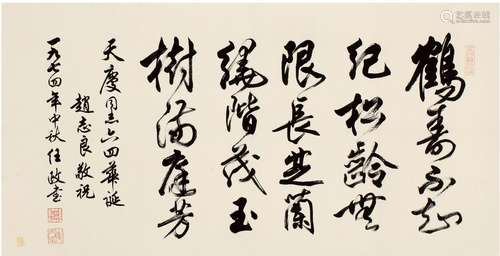 鶴壽不知
紀松齡無
限長芝蘭
繞階茂玉
樹滿庭芳
天慶同志六四華誕
趙志良敬祝
一九七四年中秋任政書